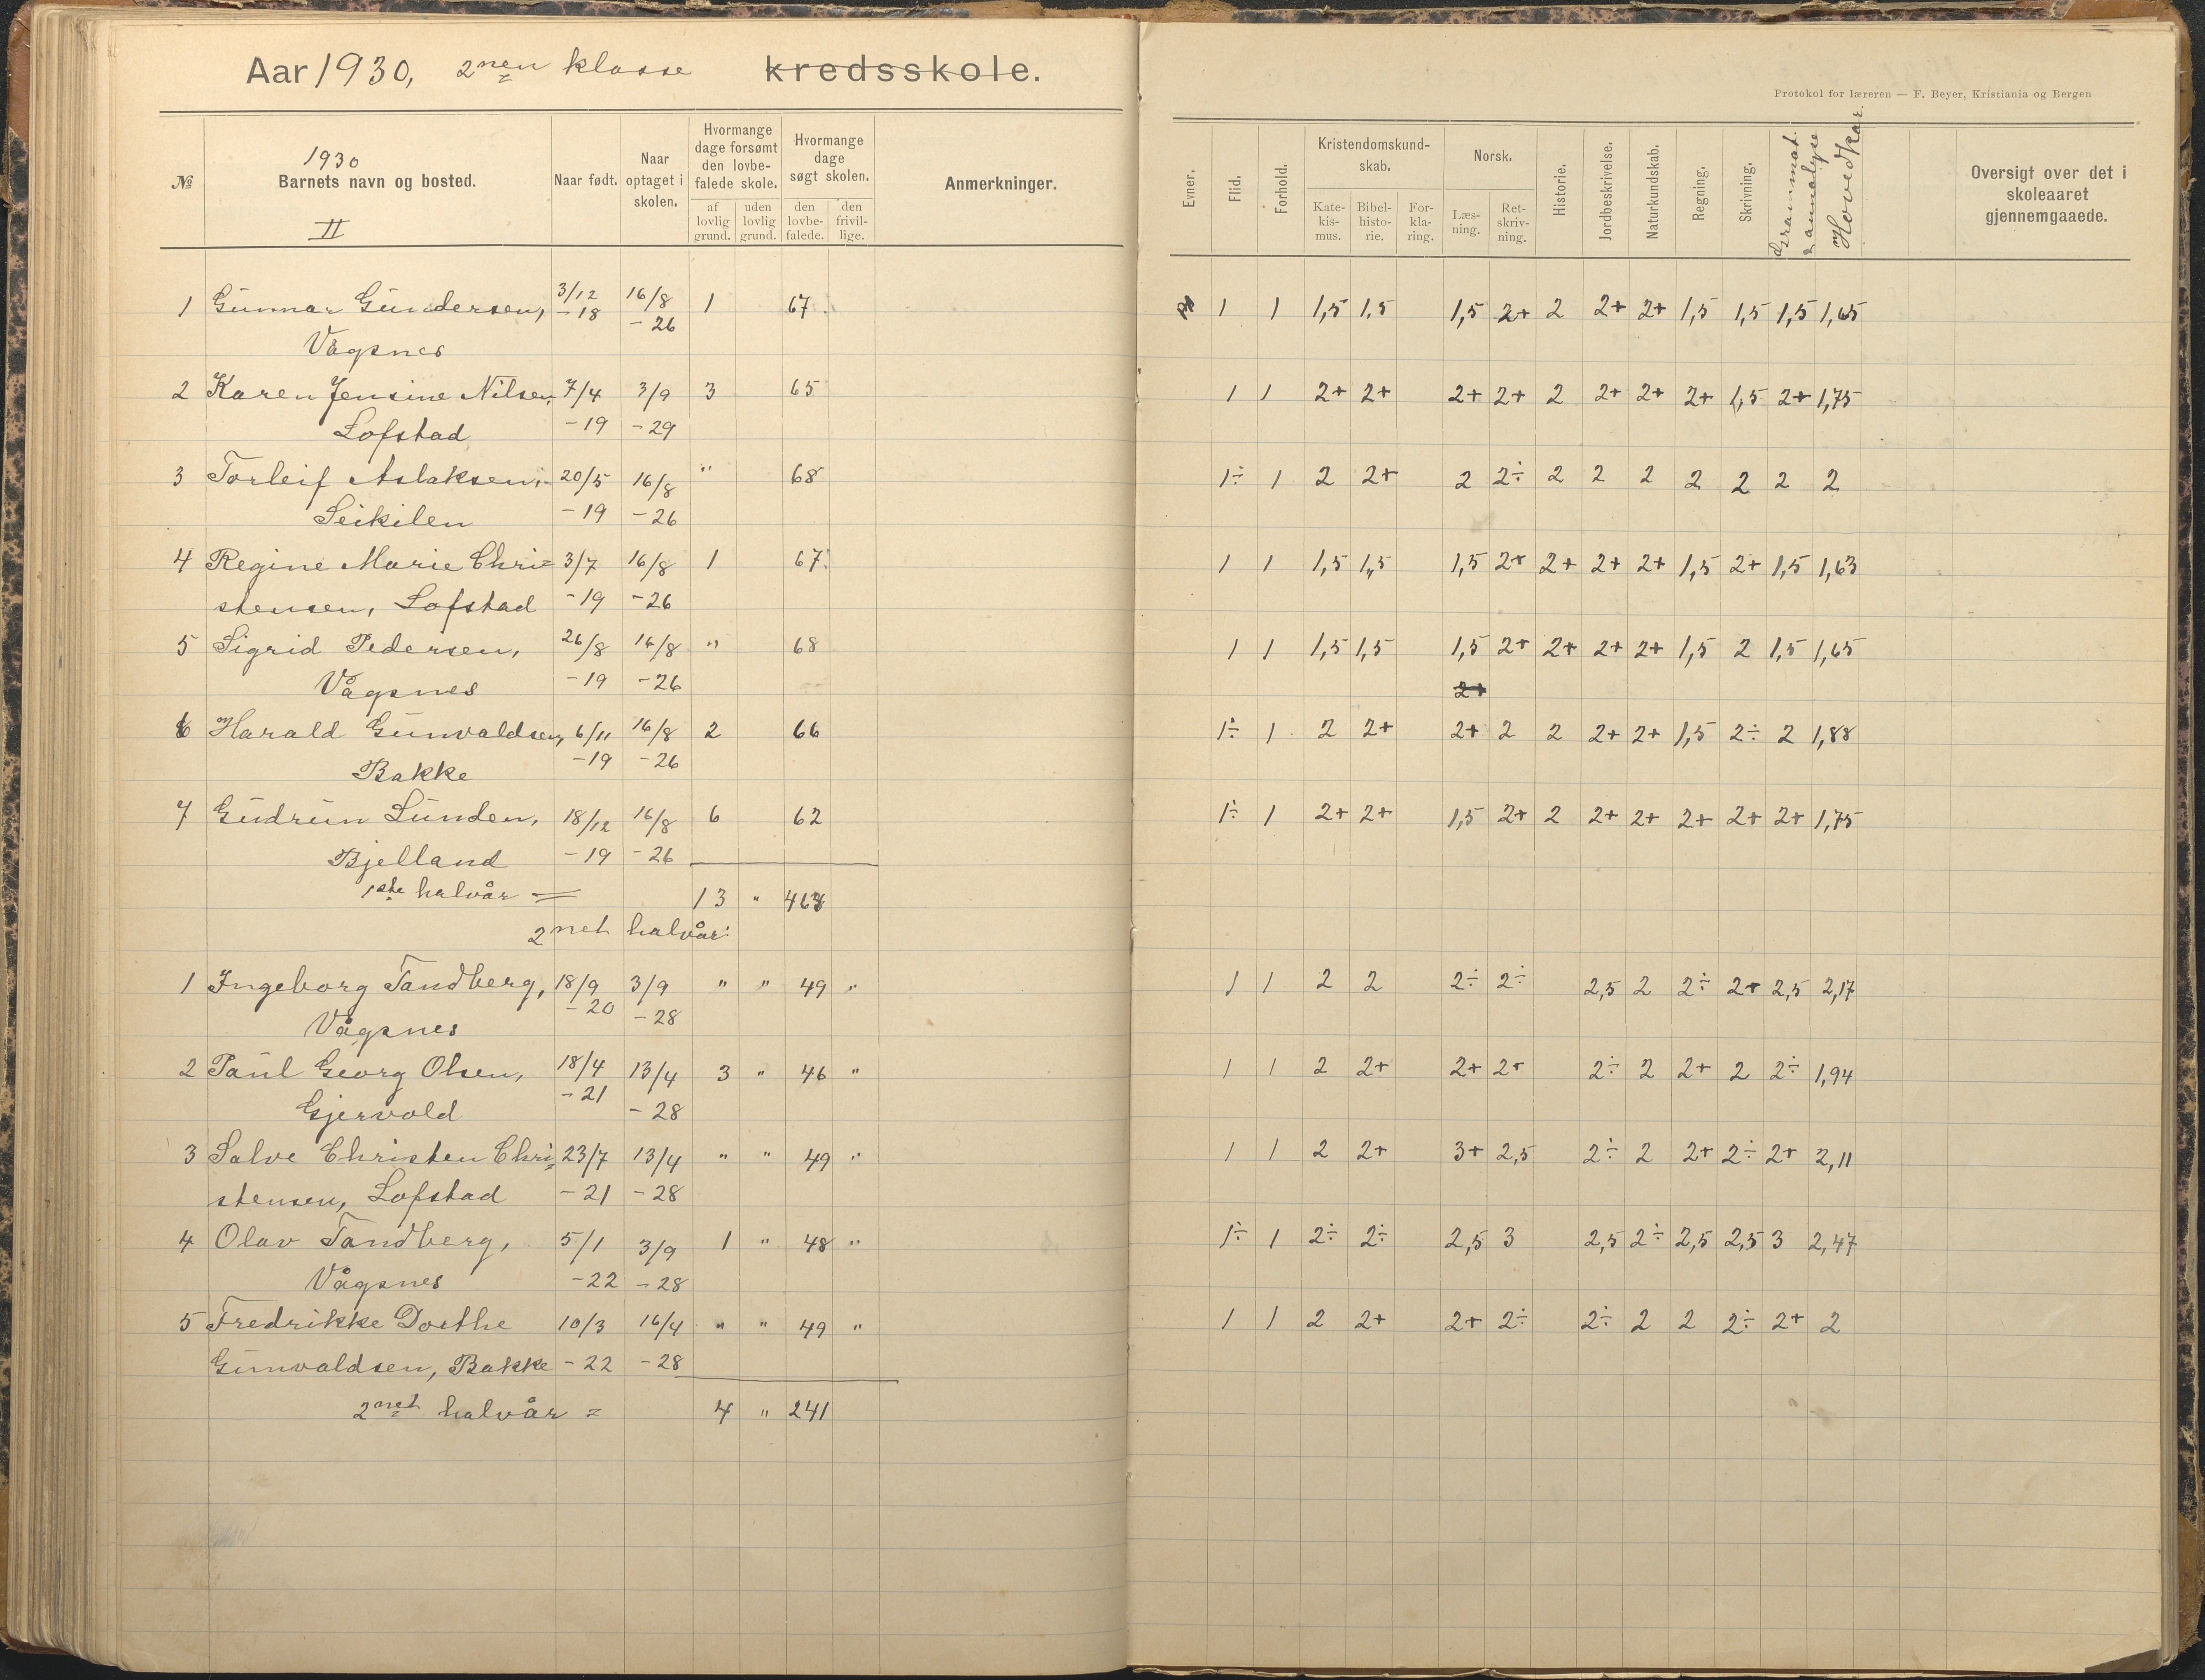 Aar 1930, 2nen klasse kredsskole.
№ 1930 Barnets navn og bosted. II Naar født. Naar optaget i skolen. Hvormange dage forsømt den lovbefalede skole. af lovlig grund. uden lovlig grund. Hvormange dage søgt skolen. den lovbefalede. den frivillige. Anmerkninger.
1 Gunnar Gundersen, 3/12 16/8 1 67
Vågsnes -18 -26
2 Karen Jensine Nilsen, 7/4 3/9 3 65
Lofstad -19 -29
3 Torleif Aslaksen, 20/5 16/8 " 68
Seikilen -19 -26
4 Regine Marie Chri= 3/7 16/8 1 67
stensen, Lofstad -19 -26
5 Sigrid Pedersen, 26/8 16/8 " 68
Vågsnes -19 -26
6 Harald Gunvaldsen, 6/11 16/8 2 66
Bakke -19 -26
7 Gudrun Lunden, 18/12 16/8 6 62
Bjelland -19 -26
1ste halvår = 13 " 463
2net halvår:
1 Ingeborg Tandberg, 18/9 3/9 " " 49 "
Vågsnes -20 -28
2 Paul Georg Olsen, 18/4 13/4 3 " 46 "
Gjervold -21 -28
3 Salve Christen Chri= 23/7 13/4 " " 49 "
stensen, Lofstad -21 -28
4 Olav Tandberg, 5/1 3/9 1 " 48 "
Vågsnes -22 -28
5 Fredrikke Dorthe 10/3 16/4 " " 49 "
Gunvaldsen, Bakke -22 -28
2net halvår = 4 " 241
Protokol for læreren — F. Beyer, Kristiania og Bergen
Evner. Flid. Forhold. Kristendomskundskab. Katekismus. Bibelhistorie. Forklaring. Norsk. Læsning. Retskrivning. Historie. Jordbeskrivelse. Naturkundskab. Regning. Skrivning. Grammat. Hovedkar. Oversigt over det i skoleaaret gjennemgaaede.
1 1 1,5 1,5 1,5 2+ 2 2+ 2+ 1,5 1,5 1,5 1,65
1 1 2+ 2+ 2+ 2+ 2 2+ 2+ 2+ 1,5 2+ 1,75
1÷ 1 2 2+ 2 2÷ 2 2 2 2 2 2 2
1 1 1,5 1,5 1,5 2+ 2+ 2+ 2+ 1,5 2+ 1,5 1,63
1 1 1,5 1,5 1,5 2+ 2+ 2+ 2+ 1,5 2 1,5 1,65
2+
1÷ 1 2 2+ 2+ 2 2 2+ 2+ 1,5 2÷ 2 1,88
1÷ 1 2+ 2+ 1,5 2+ 2 2+ 2+ 2+ 2+ 2+ 1,75
1 1 2 2 2÷ 2÷ 2,5 2 2÷ 2+ 2,5 2,17
1 1 2 2+ 2+ 2+ 2÷ 2 2+ 2 2÷ 1,94
1 1 2 2+ 3+ 2,5 2÷ 2 2+ 2÷ 2+ 2,11
1÷ 1 2÷ 2÷ 2,5 3 2,5 2÷ 2,5 2,5 3 2,47
1 1 2 2+ 2+ 2÷ 2÷ 2 2 2÷ 2+ 2